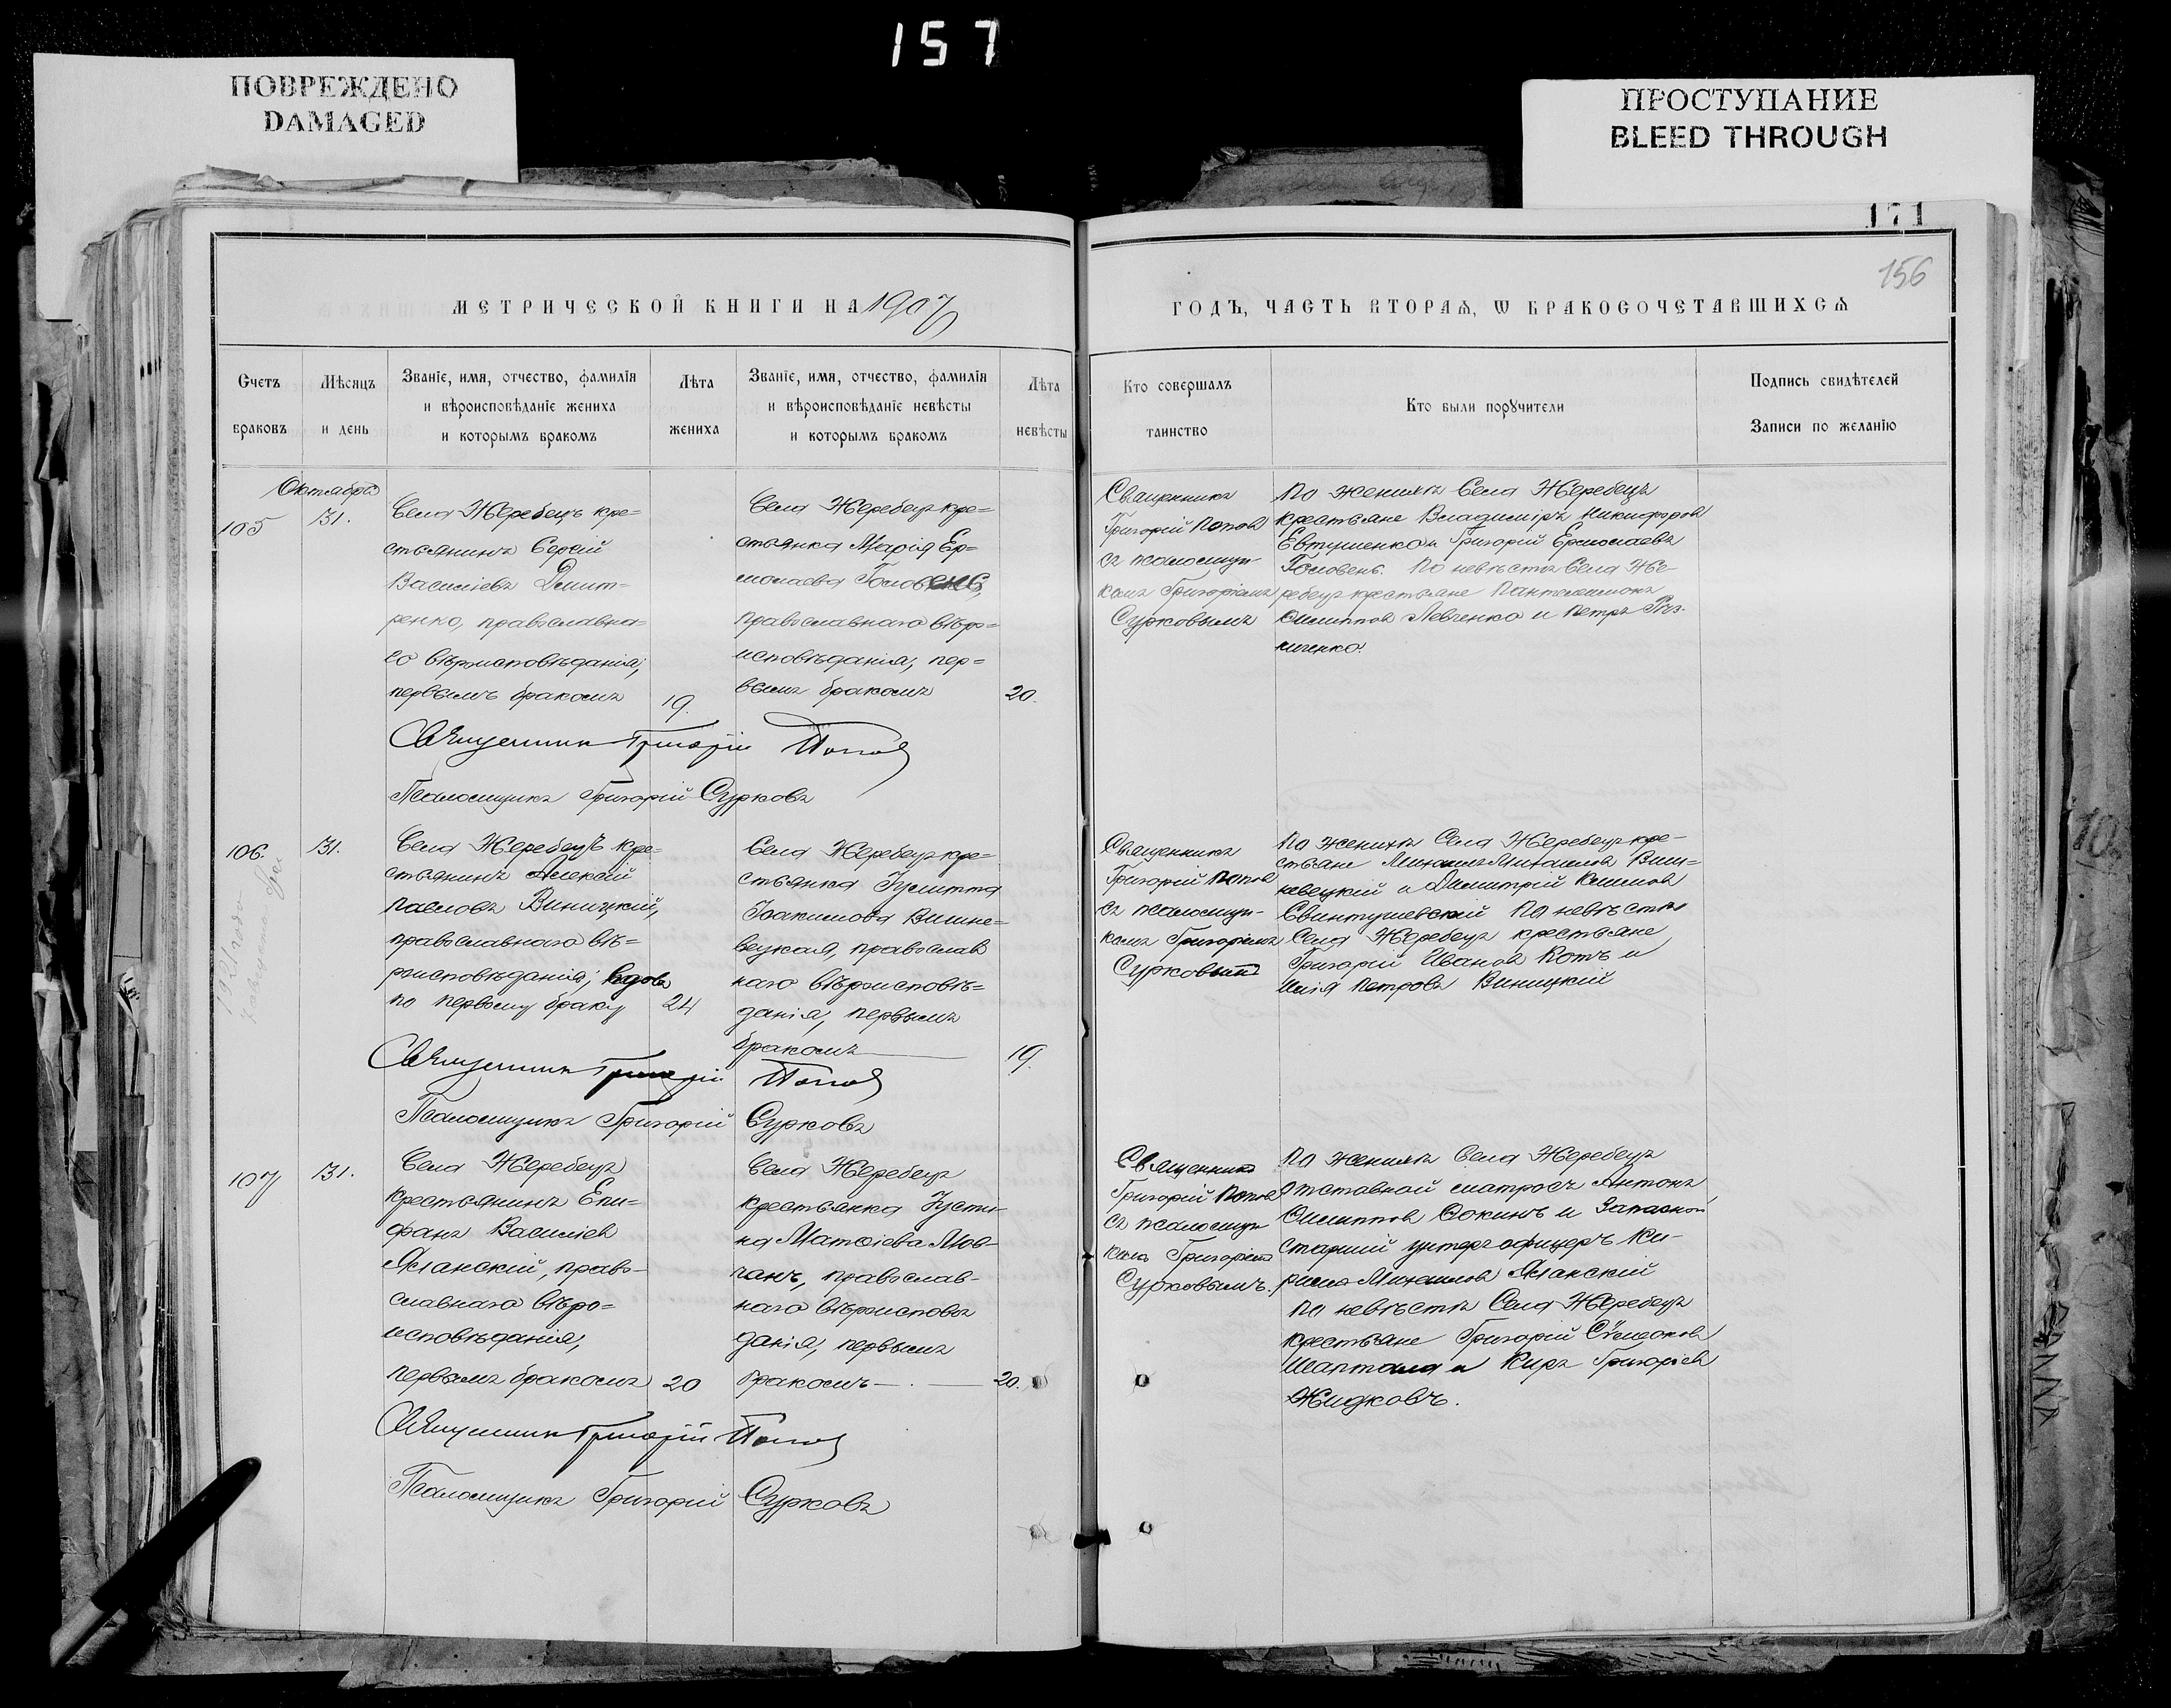 157
ПОВРЕЖДЕНО
DAMAGED
ПРОСТУПАНИЕ
BLEED THROUGH
171
156
МЕТРИЧЕСКОЙ КНИГИ НА 1907
ГОДЪ, ЧАСТЬ ВТОРАѦ, Ѡ БРАКОСОЧЕТАВШИХСѦ
Счетъ
браковъ
Мѣсяцъ
и день
Званіе, имя, отчество, фамилія
и вѣроисповѣданіе жениха
и которымъ бракомъ
Лѣта
жениха
Званіе, имя, отчество, фамилія
и вѣроисповѣданіе невѣсты
и которымъ бракомъ
Лѣта
невѣсты
Кто совершалъ
таинство
Кто были порꙋчители
Подпись свидѣтелей
Записи по желанію
105
Октября
31.
Села Жеребецъ кре=
стьянинъ Сергій
Василіевъ Дмит=
ренко, православна=
го вѣроисповѣданія;
первымъ бракомъ
19.
Села Жеребецъ кре=
стьянка Марія Ер=
молаева Головень,
православнаго вѣро=
исповѣданія, пер=
вымъ бракомъ
20.
Священникъ
Григорій Попов
съ псаломщи-
комъ Григоріемъ
Сурковымъ
По женихѣ Села Жеребецъ
крестьяне Владиміръ Никифоров
Евтушенко и Григорій Ермолаевъ
Головень. По невѣстѣ Села Же-
ребецъ крестьяне Пантелеимонъ
Филиппов Левченко и Петръ
Священник Григорій Попов
Псаломщикъ Григорій Сурковъ
106.
31.
Села Жеребецъ кре=
стьянинъ Алексій
Павловъ Виницкій,
православнаго вѣ=
роисповѣданія; вдовъ
по первому браку
24
Села Жеребецъ кре=
стьянка Іулитта
Іоакимова Вишне=
вецкая, православ
наго вѣроисповѣ=
данія, первымъ
бракомъ
19.
Священникъ
Григорій Попов
съ псаломщи-
комъ Григоріемъ
Сурковымъ
По женихѣ Села Жеребецъ кре-
стьяне Михаилъ Михаилов Виш=
невецкій и Димитрій Климов
Свинтушевскій По невѣстѣ
Села Жеребецъ крестьяне
Григорій Иванов Котъ и
Илія Петровъ Виницкій
Священник Григорій Попов
Псаломщикъ Григорій Сурковъ
107
31.
Села Жеребецъ
крестьянинъ Епи=
фанъ Василіев
Ясанскій, право-
славнаго вѣро=
исповѣданія,
первымъ бракомъ
20
Села Жеребецъ
крестьянка Іусти-
на Матѳіева Мов-
чанъ, православ-
наго вѣроисповѣ
данія, первымъ
бракомъ
20.
Священникъ
Григорій Попов
съ псаломщи
комъ Григоріемъ
Сурковымъ.
По женихѣ Села Жеребецъ
Отставной матросъ Антонъ
Филиппов Сокинъ и Запасной
старшій унтеръ офицеръ Ки-
рилъ Михаилов Ясанскій
По невѣстѣ Села Жеребецъ
крестьяне Григорій Сѵмеонов
Шаптала и Киръ Григоріев
Жидковъ.
Священник Григорій Попов
Псаломщикъ Григорій Сурковъ